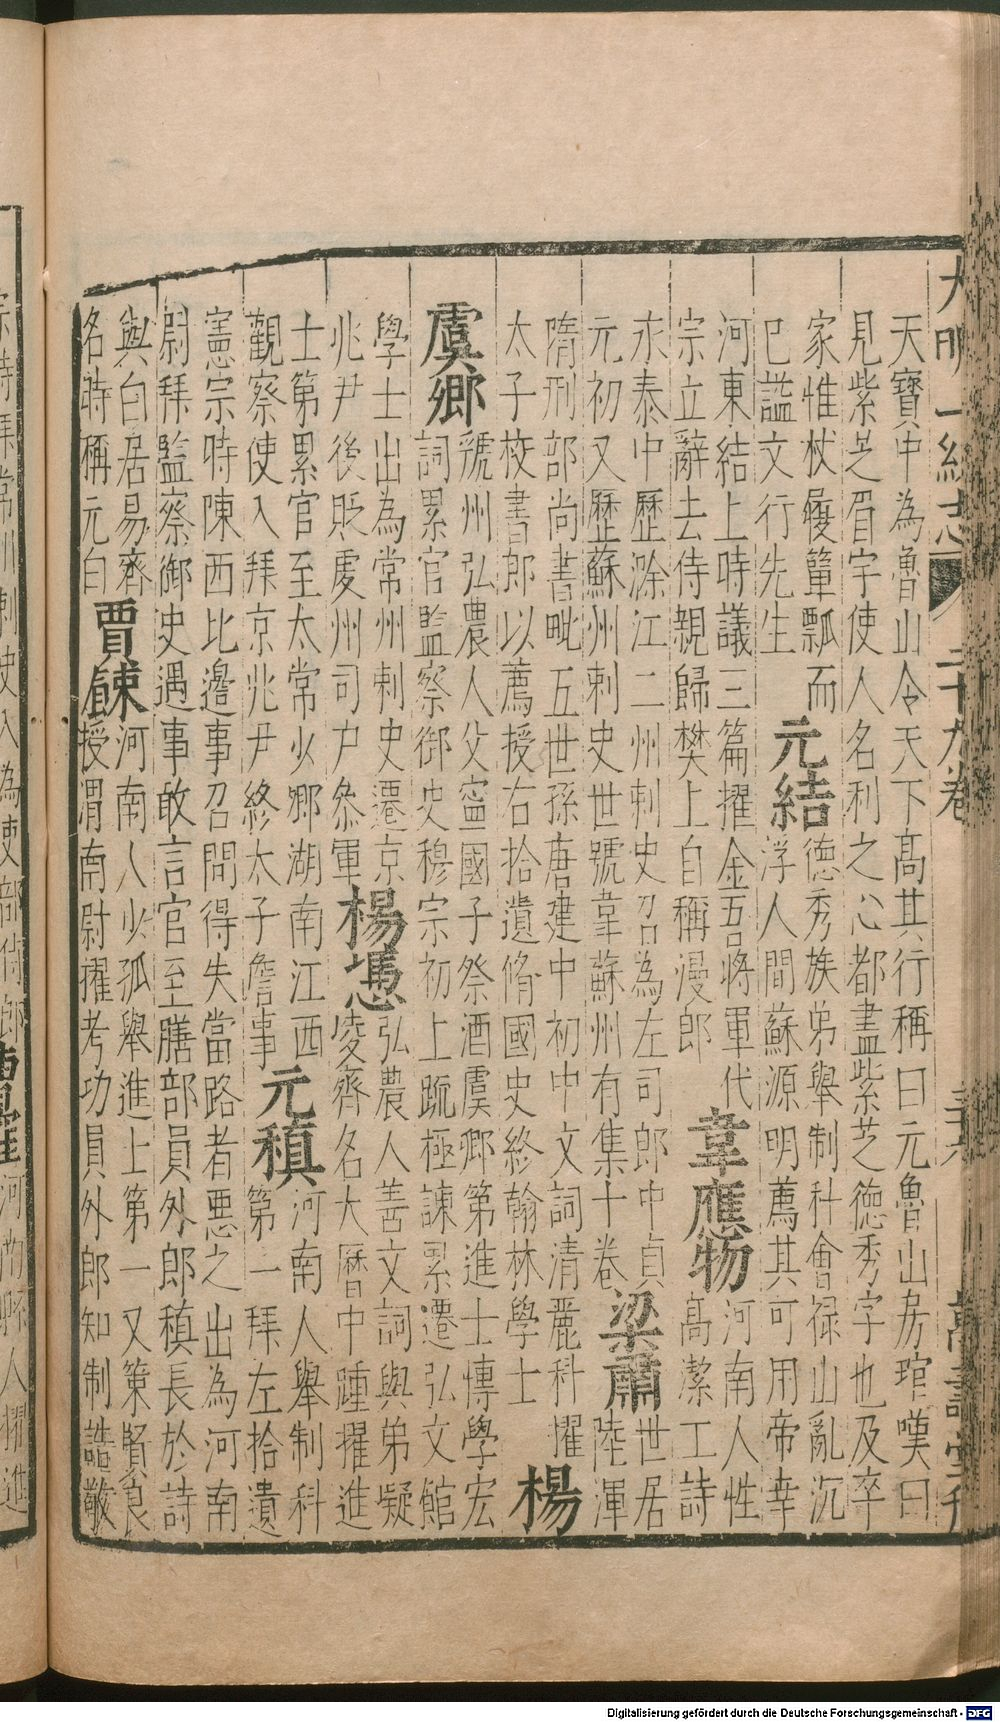 大明一統志 二十九卷
天寶中為魯山令天下高其行稱曰元魯山房琯嘆曰
見紫芝眉宇使人名利之心都盡紫芝德秀字也及卒
家惟杖屨簞瓢而
已謚文行先生
元結
德秀族弟舉制科會禄山亂沉
浮人間蘇源明薦其可用帝幸
河東結上時議三篇擢金吾將軍代
宗立辭去侍親歸樊上自稱漫郎
韋應物
河南人性
高潔工詩
永泰中歷滁江二州刺史召為左司郎中貞
元初又歷蘇州刺史世號韋蘇州有集十卷
梁肅
世居
陸渾
隋刑部尚書毗五世孫唐建中初中文詞清麗科擢
太子校書郎以薦授右拾遺脩國史終翰林學士
楊
虞卿
虢州弘農人父寧國子祭酒虞卿第進士博學宏
詞累官監察御史穆宗初上疏極諫累遷弘文館
學士出為常州刺史遷京
兆尹後貶虔州司户叅軍
楊慿
弘農人善文詞與弟凝
凌齊名大曆中踵擢進
士第累官至太常少卿湖南江西
觀察使入拜京兆尹終太子詹事
元稹
河南人舉制科
第一拜左拾遺
憲宗時陳西比邊事召問得失當路者惡之出為河南
尉拜監察御史遇事敢言官至膳部員外郎稹長於詩
與白居易齊
名時稱元白
賈餗
河南人少孤舉進上第一又策賢良
授渭南尉擢考功員外郎知制誥敬
宗時拜常州刺史入為吏部侍郎
人擢進
Digitalisierung gefördert durch die Deutsche Forschungsgemeinschaft - DFG